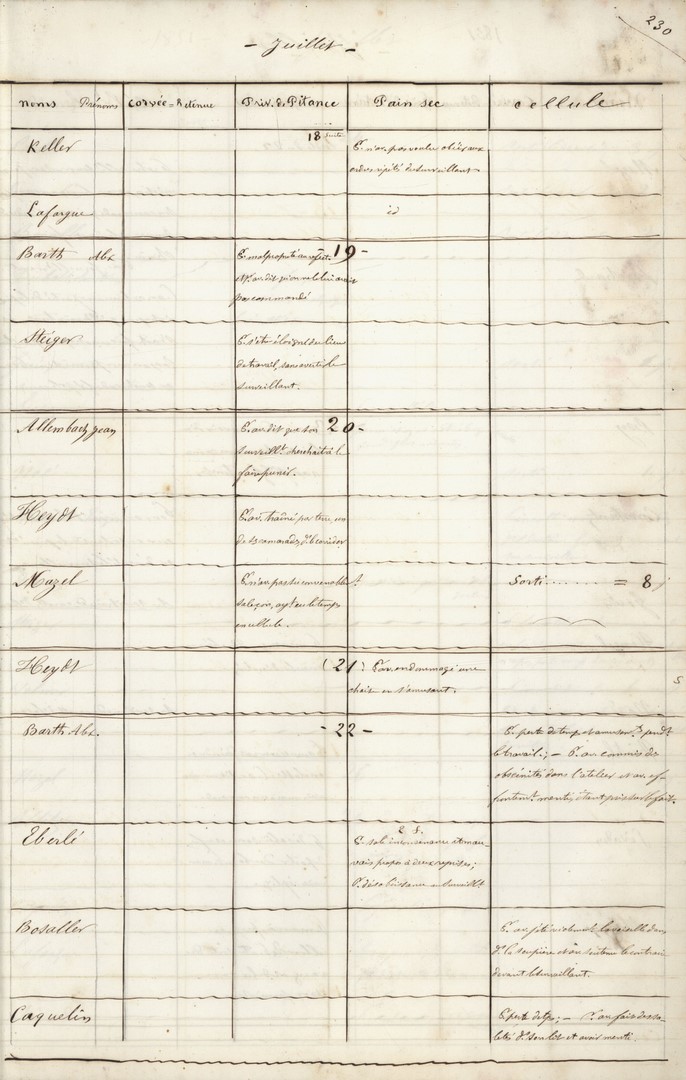 230
- Juillet -
noms Prénoms corvée = Retenue Priv. de Pitance Pain sec cellule
18 suite
Keller P. n'av. pas voulu obéir aux
ordres répétés du surveillant
Lafargue id
- 19 -
Barth Alx P. malpropreté au réfect.
et P. av. dit qu'on ne le lui avait
pas commandé
Steiger P. s'être éloigné du lieu
de travail, sans avertir le
surveillant.
20 -
Allembach Jean P. av. dit que son
surveillt. cherchait à le
faire punir.
Heydt P. av. traîné par terre, un
de ses camarades, dt. le corridor
Mazel P. n'av. pas su convenablet.
sa leçon, ayt. eu le temps
en cellule.
Sorti ........ = 8
(21)
Heydt P. av. endommagé une
chaise en s'amusant.
- 22 -
Barth Alx. P. perte de temps et amusemt. pendt.
le travail; - P. av. commis des
obscénités dans l'atelier et av. ef-
frontemt. menti, étant pris sur le fait.
Eberlé P. sale
vais propos à deux reprises;
P. désobéissance au surveillt.
Bosaller P. av. jeté
dt. la soupière et av. soutenu le contraire
devant le surveillant.
Caquelin P. perte de tps; - P. av. fait des sa-
letés dt. son lit et avoir menti.